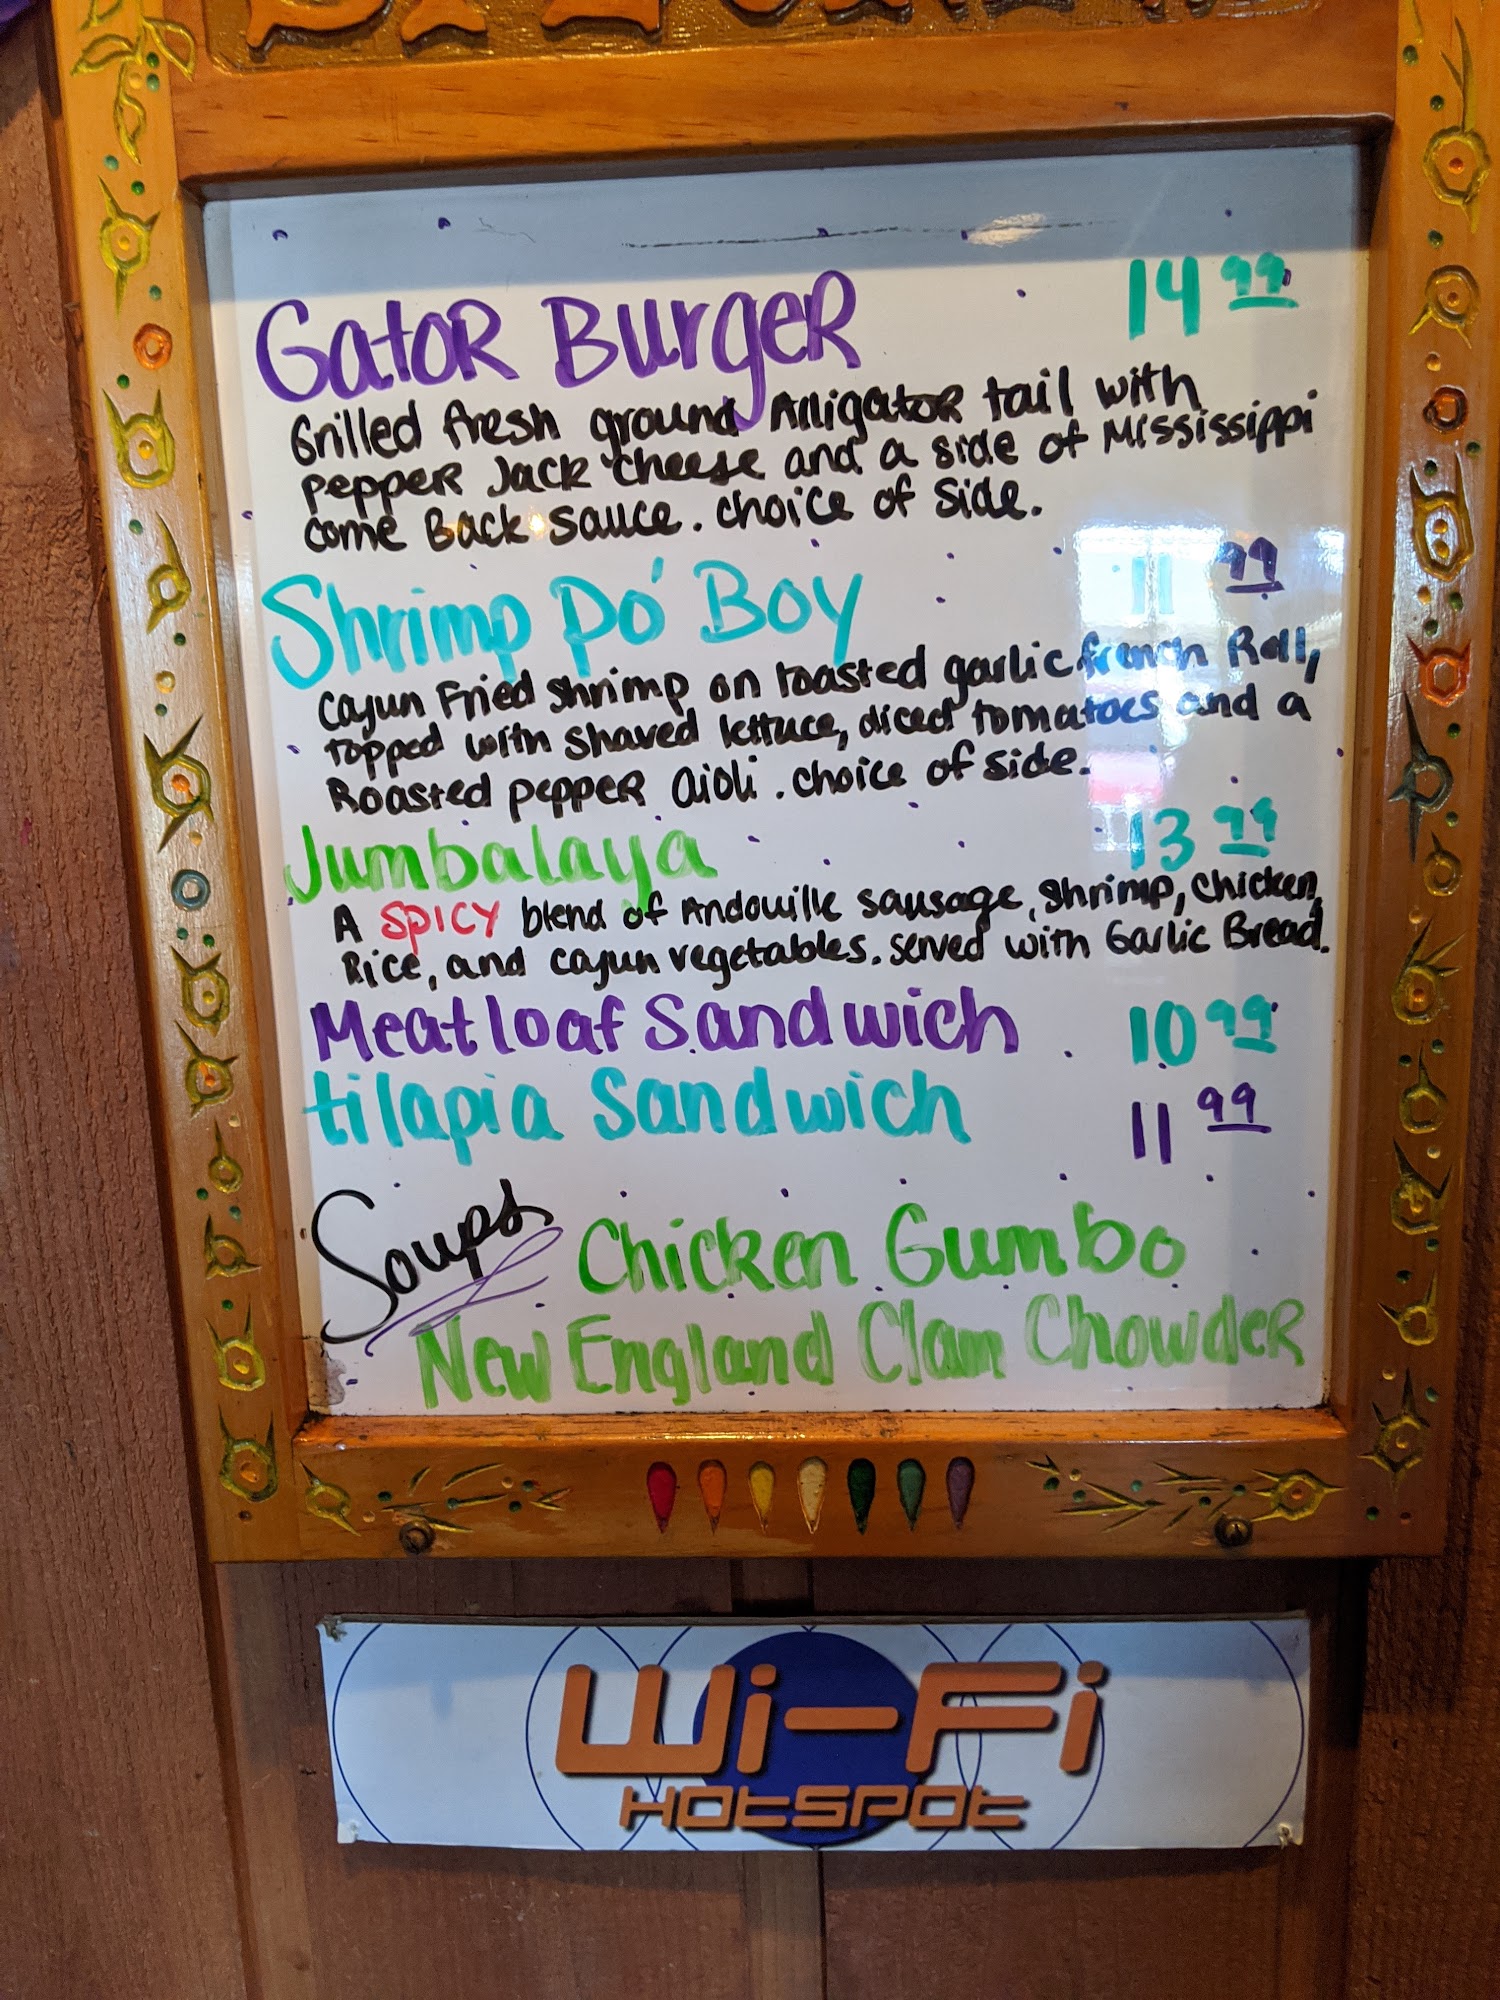 Gator Burger 14 99
Grilled fresh ground Alligator tail with
pepper Jack cheese and a side of Mississippi
come Back sauce. choice of side.
Shrimp Po' Boy 11 99
Cajun Fried shrimp on toasted garlic french Roll,
topped with shaved lettuce, diced tomatoes and a
Roasted pepper aioli. choice of side.
Jumbalaya 13 99
A SPICY blend of Andouille sausage, shrimp, chicken,
Rice, and cajun vegetables. served with Garlic Bread.
Meatloaf Sandwich 10 99
tilapia Sandwich 11 99
Soups Chicken Gumbo
New England Clam Chowder
Wi-Fi
HOTSPOT